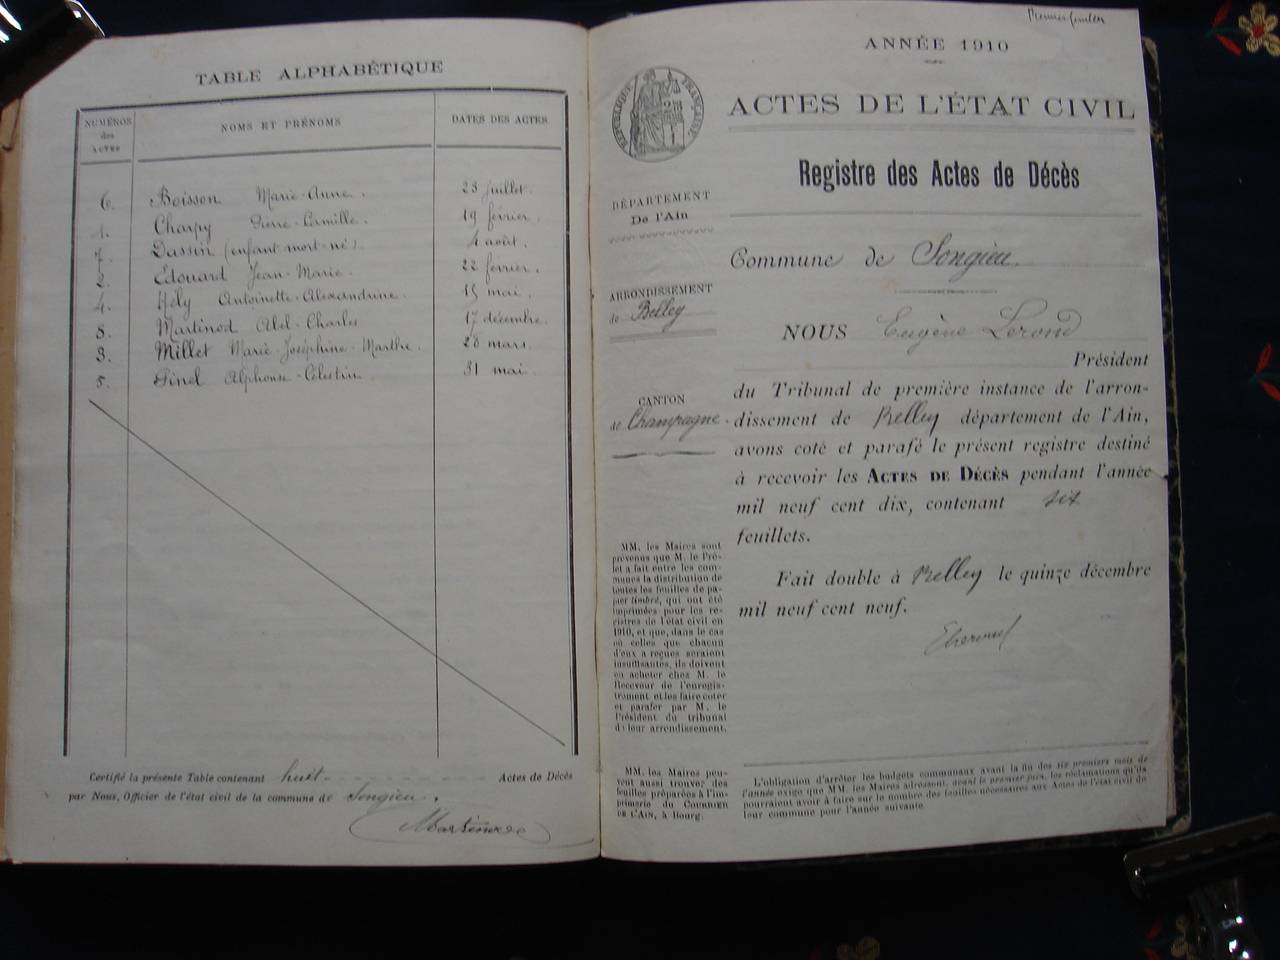 TABLE ALPHABÉTIQUE
NUMÉROS des ACTES
NOMS ET PRÉNOMS
DATES DES ACTES
6. Boisson Marie-Anne. 23 juillet.
1. Charpy Pierre-Camille. 19 février.
7. Dassin (enfant mort-né). 4 août.
2. Edouard Jean-Marie. 22 février.
4. Hély Antoinette-Alexandrine. 15 mai.
8. Martinod Abel-Charles 17 décembre.
3. Millet Marie-Joséphine-Marthe. 28 mars.
5. Pinel Alphonse-Célestin 31 mai.
Certifié la présente Table contenant huit Actes de Décès
par Nous, Officier de l'état civil de la commune de Songieu.
Premier feuillet
ANNÉE 1910
RÉPUBLIQUE FRANÇAISE
ACTES DE L'ÉTAT CIVIL
Registre des Actes de Décès
DÉPARTEMENT
De l'Ain
ARRONDISSEMENT
de Belley
CANTON
de Champagne.
Commune de Songieu.
NOUS Eugène Lerond
Président
du Tribunal de première instance de l'arron-
dissement de Belley département de l'Ain,
avons coté et parafé le présent registre destiné
à recevoir les ACTES DE DÉCÈS pendant l'année
mil neuf cent dix, contenant six
feuillets.
Fait double à Belley le quinze décembre
mil neuf cent neuf.
MM. les Maires sont
prévenus que M. le Pré-
fet a fait entre les com-
munes la distribution de
toutes les feuilles de pa-
pier timbré, qui ont été
imprimées pour les re-
gistres de l'état civil en
1910, et que, dans le cas
où celles que chacun
d'eux a reçues seraient
insuffisantes, ils doivent
en acheter chez M. le
Receveur de l'enregis-
trement et les faire coter
et parafer par M. le
Président du tribunal
de leur arrondissement.
MM. les Maires peu-
vent aussi trouver des
feuilles préparées à l'im-
primerie du COURRIER
DE L'AIN, à Bourg.
L'obligation d'arrêter les budgets communaux avant la fin des six premiers mois de
l'année exige que MM. les Maires adressent, avant le premier juin, les réclamations qu'ils
pourraient avoir à faire sur le nombre des feuilles nécessaires aux Actes de l'état civil de
leur commune pour l'année suivante.